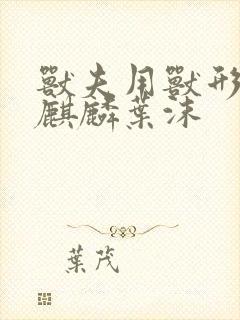 獸夫用獸形
麒麟葉沫
葉茂